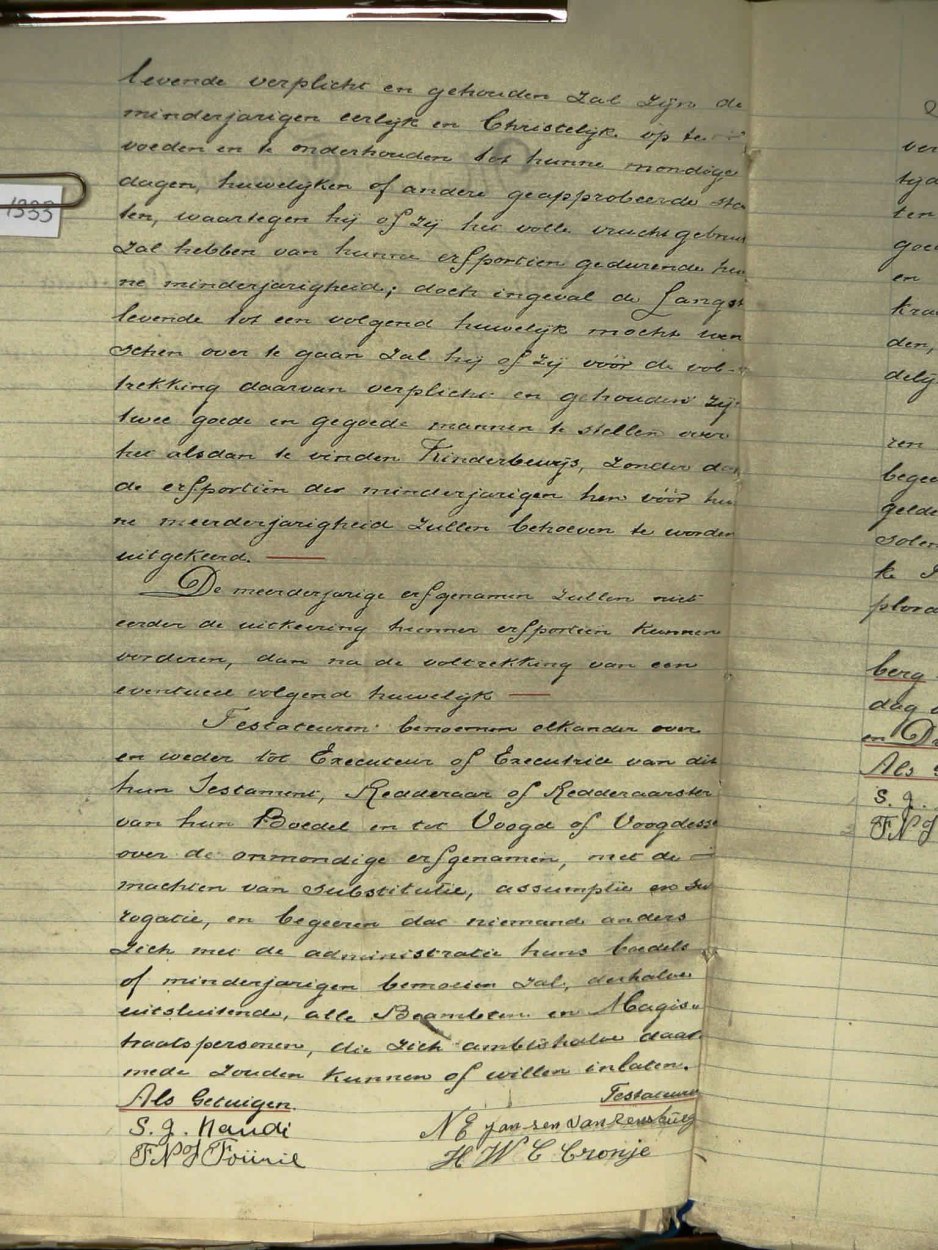 1333
levende verplicht en gehouden zal zijn de
minderjarigen eerlijk en Christelijk op te
voeden en te onderhouden tot hunne mondige
dagen, huwelijken of andere geapprobeerde sta
ten, waartegen hij of zij het volle vruchtgebruik
zal hebben van hunne erfportien gedurende hun
ne minderjarigheid; doch ingeval de Langst
levende tot een volgend huwelijk mocht wen
schen over te gaan zal hij of zij vóór de vol-
trekking daarvan verplicht en gehouden zijn
twee goede en gegoede mannen te stellen over
het alsdan te vinden Kinderbewijs, zonder dat
de erfportiën der minderjarigen hen vóór hun
ne meerderjarigheid zullen behoeven te worden
uitgekeerd.
De meerderjarige erfgenamen zullen niet
eerder de uitkeering hunner erfportien kunnen
vorderen, dan na de voltrekking van een
eventueel volgend huwelijk
Testateuren benoemen elkander over
en weder tot Executeur of Executrice van dit
hun Testament, Redderaar of Redderaarster
van hun Boedel en tot Voogd of Voogdesse
over de onmondige erfgenamen, met de
machten van substitutie, assumptie en sur
rogatie, en begeeren dat niemand anders
zich met de administratie huns boedels
of minderjarigen bemoeien zal, derhalve
uitsluitende, alle Beambten en Magis-
traatspersonen, die zich ambtshalve daar
mede zouden kunnen of willen inlaten.
Als Getuigen. Testateuren
S. J. Naudi N E Jansen van Rensburg
F N J Fourie H W C Cronje
ver
tijd
ten
goe
en
kra
den,
delij
ren
begee
gelde
solem
te
plora
berg
dag
en D
Als
S. J.
F N J